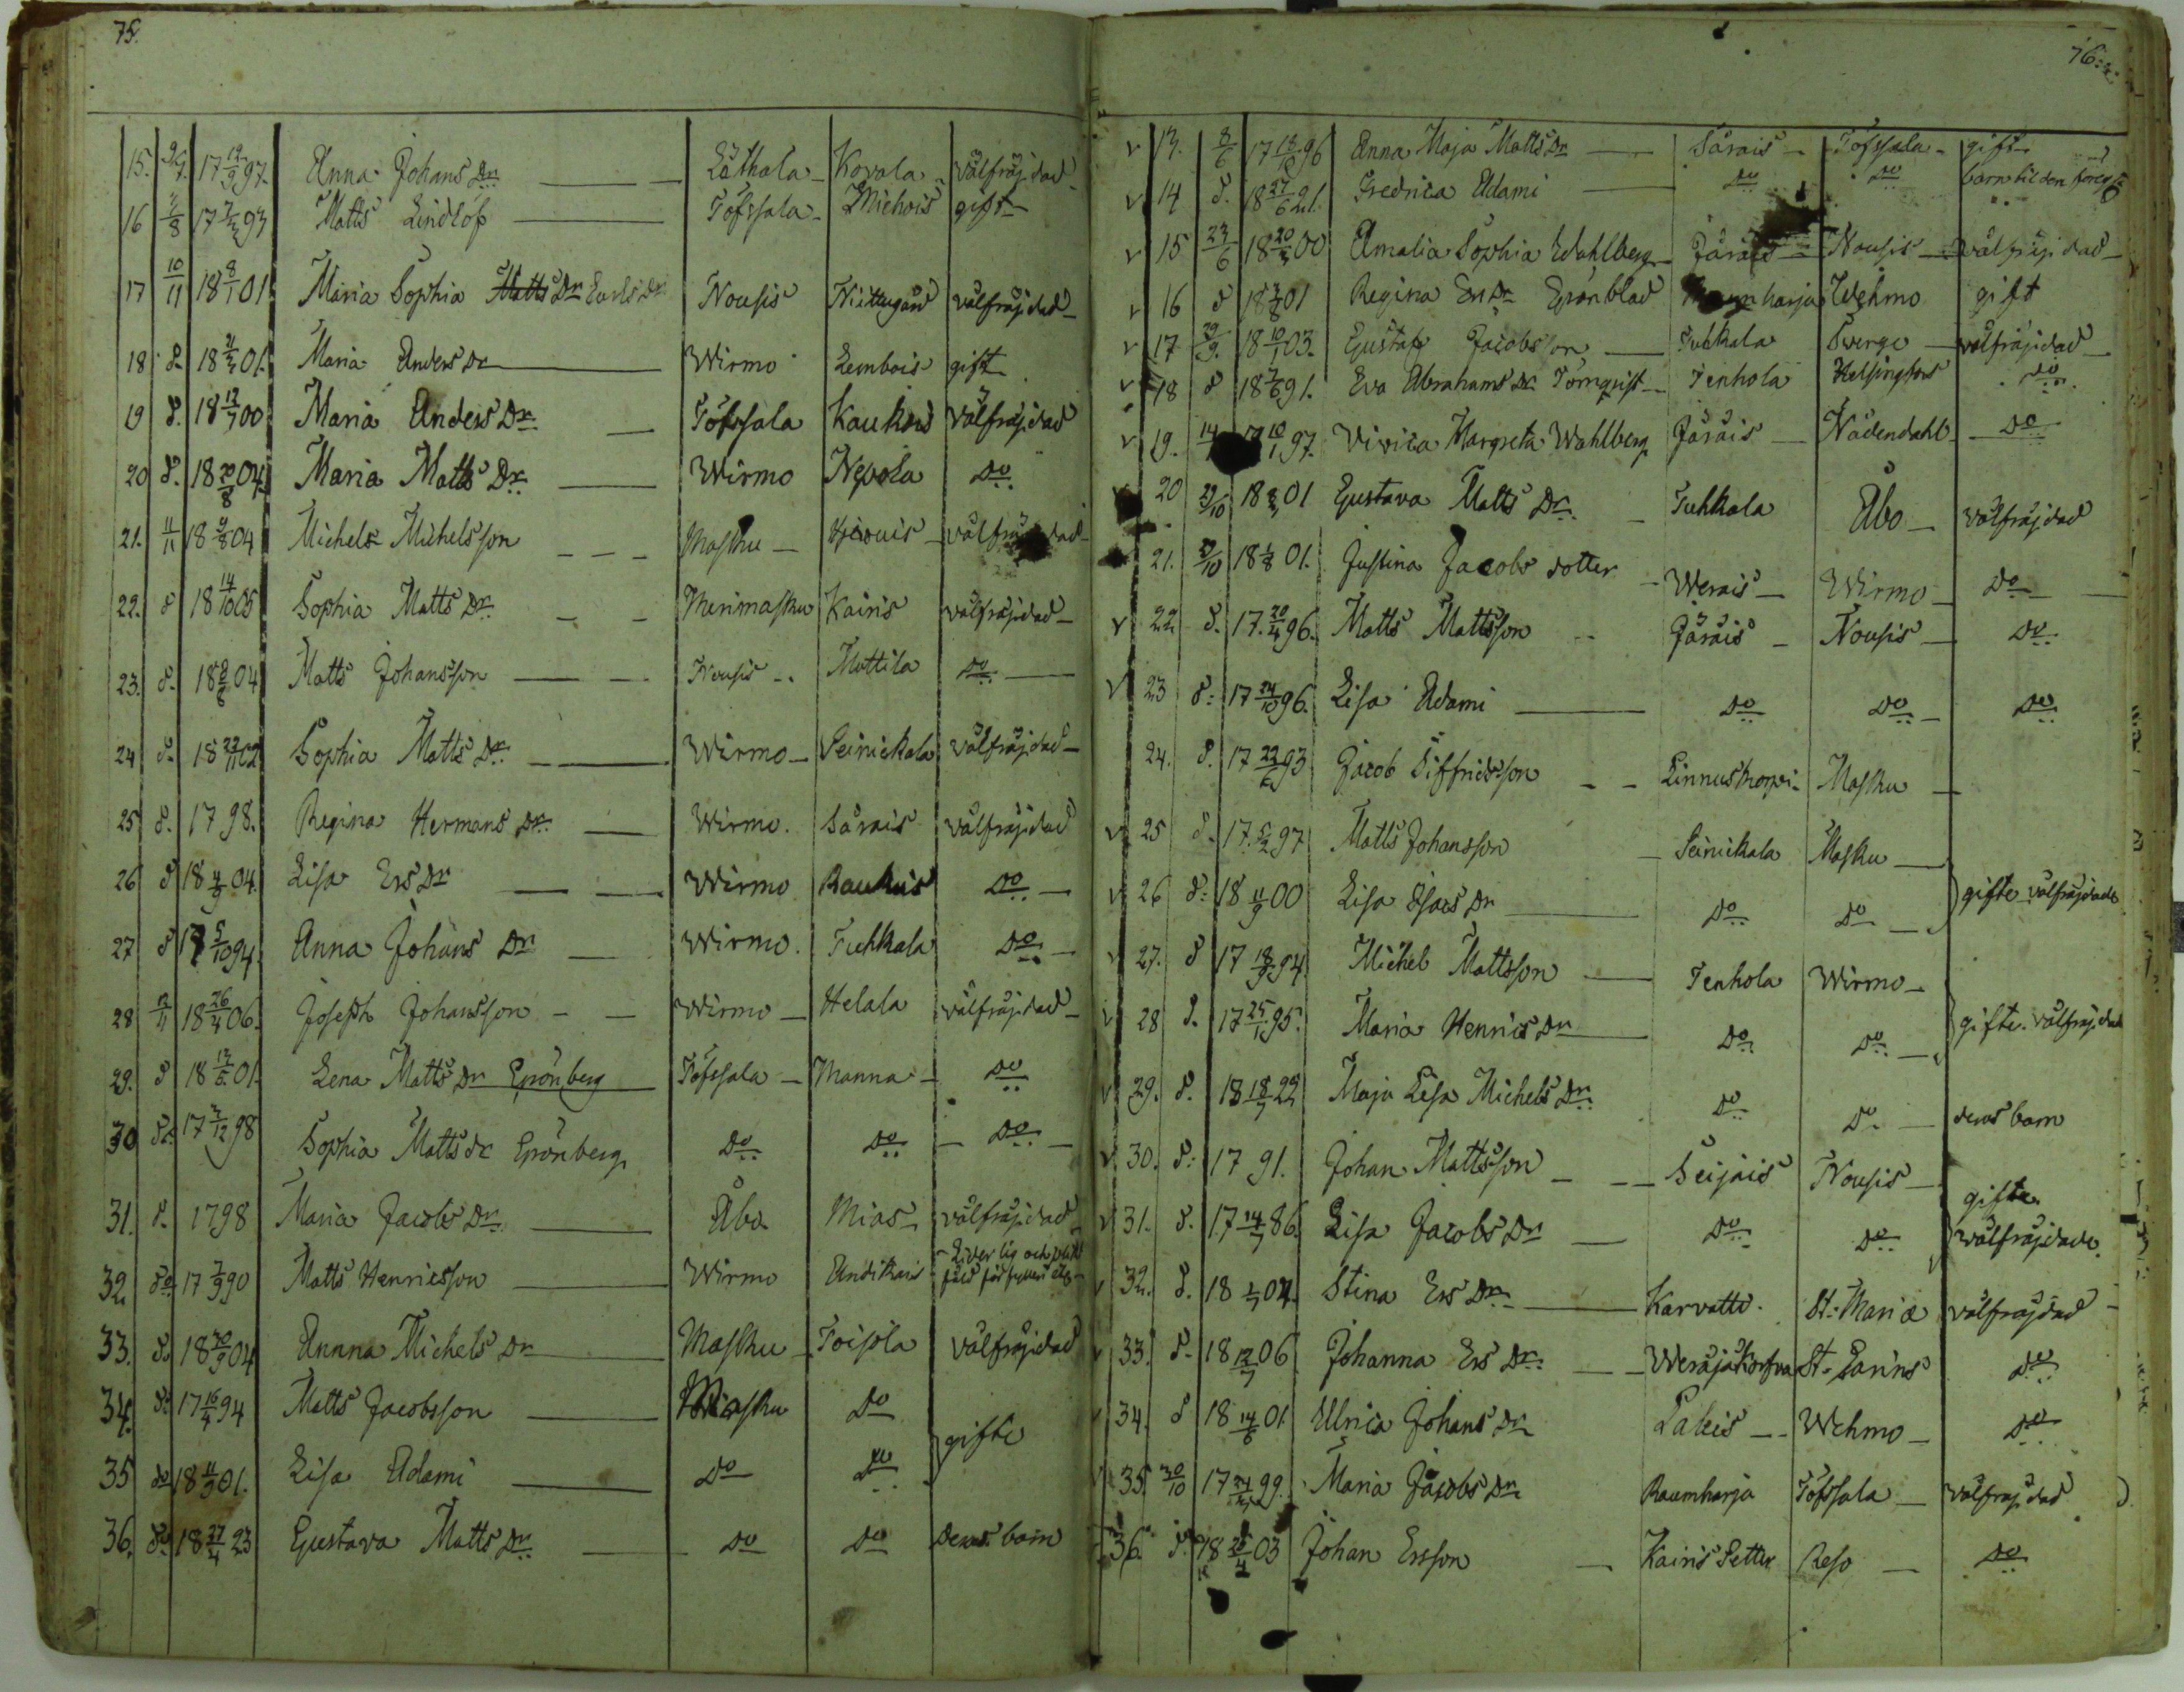 75.
15. 9/9. 17 19/9 97. Anna Johans Dr. Låthala Kovala välfräjdad
16 2/8 17 7/2 93 Matts Lindlöf Töfssala Michois gift
17 10/11 18 8/1 01 Maria Sophia Matts Dr Carls Dr Nousis Niittugård välfräjdad
18 d. 18 21/3 01. Maria Anders Dr Wirmo Lembois gift
19 d. 18 12/7 00 Maria Anders Dr. Töfsala Kaukois välfräjdad
20 d. 18 20/8 04. Maria Matts Dr. Wirmo Nepola Do
21. 11/11 18 9/8 04 Michel Michelsson Masku välfräjdad
22. d 18 14/10 05 Sophia Matts Dr. Merimasku Kairis välfräjdad
23. d. 18 04 Matts Johansson Nousis Mattila Do
24 d. 18 22/11 02 Sophia Matts Dr. Wirmo Seinickala välfräjdad
25 d. 17 98. Regina Hermans Dr. Wirmo. Särais välfräjdad
26 d 18 4/9 04. Lisa Ers Dr Wirmo Raukis Do
27 d 17 5/10 94. Anna Johans Dr Wirmo. Tuhkala Do
28 12/11 18 26/4 06. Joseph Johansson Wirmo Helala välfräjdad
29. d 18 12/6 01. Lena Matts Dr Grönberg Töfssala Manna Do
30 d. 17 3/12 98 Sophia Matts dr Grönberg Do Do Do
31. d. 1798 Maria Jacobs Dr. Åbo Mias välfräjdad
32. do 17 7/9 90 Matts Henricsson Wirmo Andikais
33. do 18 30/9 04 Annna Michels Dr Masku Toisola välfräjdad
34. do 17 16/4 94 Matts Jacobsson Masku Do
gifte
35 do 18 11/3 01. Lisa Adami Do Do
36. do 18 27/4 23 Gustava Matts Dr. Do Do deras barn
76.
v 13. 8/6 17 13/6 96 Anna Maja Matts Dr Särais Töfssala gift
v 14 d. 18 27/6 21. Fredrica Adami Do Do barn til den föreg.
v 15 23/6 18 20/3 00 Amalia Sophia Wahlberg Järais Nousis välfräjdad
v 16 d 18 01 Regina Ers Dr Grönblad Raumharja Wehmo gift
v 17 29/9. 18 10/1 03. Gustaf Jacobsson Tuhkala Sverge välfräjdad
v 18 d 18 7/6 91. Eva Abrahams Dr Törnqvist Tenhola Helsingfors Do
v 19. 10/1 97. Vivica Margreta Wahlberg Järais Nådendahl Do
20 29/10 18 01 Gustava Matts Dr. Tuhkala Åbo välfräjdad
21. 29/10 18 1/8 01. Justina Jacobs dotter Werais Wirmo Do
v 22 d. 17. 20/4 96. Matts Mattsson Järais Nousis Do
v 23 d. 17 24/10 96. Lisa Adami Do Do Do
24. d. 17 22/6 93 Jacob Siffridsson Linnuskorpi Masku
v 25 d. 17. 5/2 97 Matts Johansson Seinickala Masku
gifte välfräjdade
v 26 d. 18 11/9 00 Lisa Isacs Dr Do Do
v 27. d 17 18/9 94. Michel Mattsson Tenhola Wirmo
gifte. välfräjdade
v 28 d. 17 25/1 95. Maria Henrics Dr Do Do
v 29. d. 18 18/7 22 Maja Lisa Michels Dr. Do Do deras barn
v 30. d. 17 91. Johan Mattsson Seijais Nousis
gifte
v 31. d. 17 14/7 86. Lisa Jacobs Dr Do Do välfräjdade.
v 32. d. 18 1/7 04. Stina Ers Dr. Karvatti. St. Mariæ välfräjdad
v 33. d. 18 12/7 06 Johanna Ers Dr. Weräjäkorfva St. Carins Do
v 34. d 18 14/6 01. Ulrica Johans Dr Lakeis Wehmo Do
v 35. 30/10 17 99. Maria Jacobs Dr Raumharja Töfssala välfräjdad
36. d. 18 03 Johan Ersson Kairis Petter Reso Do